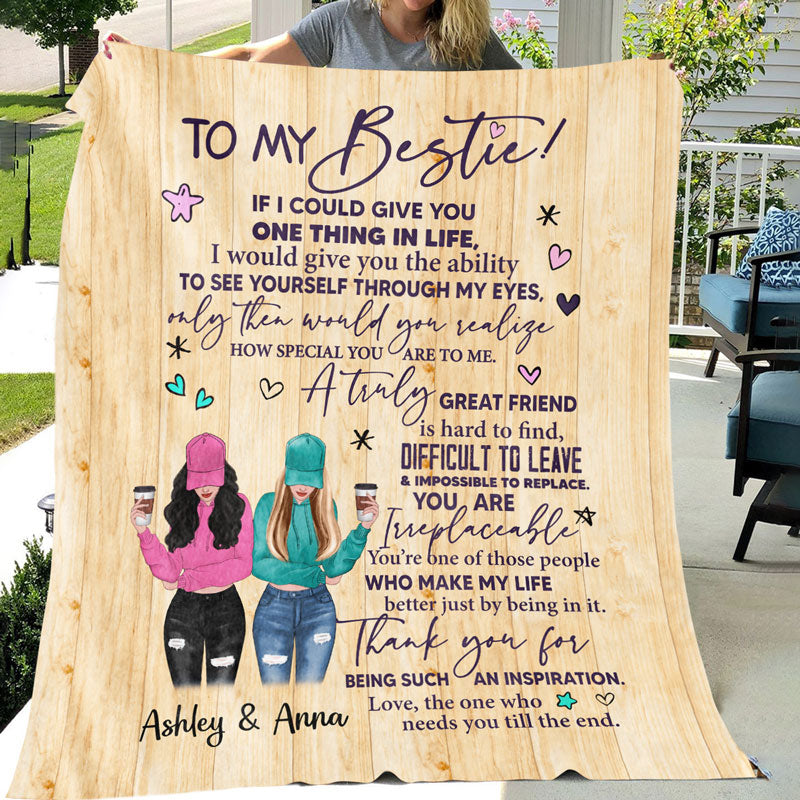 TO MY Bestie!
IF I COULD GIVE YOU
ONE THING IN LIFE,
I would give you the ability
TO SEE YOURSELF THROUGH MY EYES,
only then would you realize
HOW SPECIAL YOU ARE TO ME.
A truly GREAT FRIEND
is hard to find,
DIFFICULT TO LEAVE
& IMPOSSIBLE TO REPLACE.
YOU ARE
Irreplaceable
You're one of those people
WHO MAKE MY LIFE
better just by being in it.
Thank you for
BEING SUCH AN INSPIRATION.
Love, the one who
needs you till the end.
Ashley & Anna